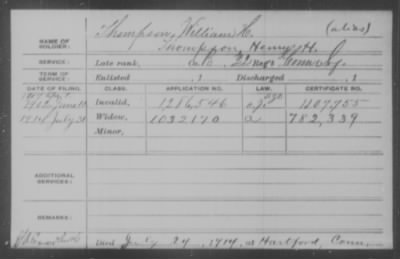 Thompson, William H. (alias)
NAME OF SOLDIER: Thompson, Henry H.
SERVICE: Late rank, Reg't Conn.
TERM OF SERVICE: Enlisted , 1 Discharged , 1
DATE OF FILING. CLASS. APPLICATION NO. LAW. CERTIFICATE NO.
1902 June Invalid, 1286,546 1107,755
1914 July 31 Widow, 1032170 782,339
Minor,
ADDITIONAL SERVICES:
REMARKS:
Died July 29, 1914, at Hartford, Conn.